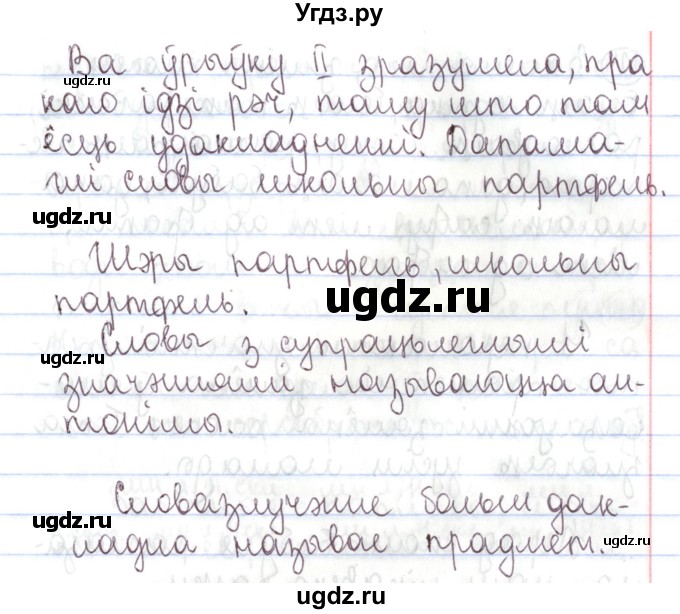 Угдз.ру
Ва ўрыўку II зразумела, пра
каго ідзі рэч, таму што там
ёсць удакладненні. Дапама-
глі словы школьны партфель.
Шэры партфель, школьны
партфель.
Словы з супрацьлеглымі
значэннямі называюцца ан-
тонімы.
Словазлучэнне больш дак-
ладна называе прадмет.
ugdz.ru
ugdz.ru
ugdz.ru
ugdz.ru
ugdz.ru
ugdz.ru
ugdz.ru